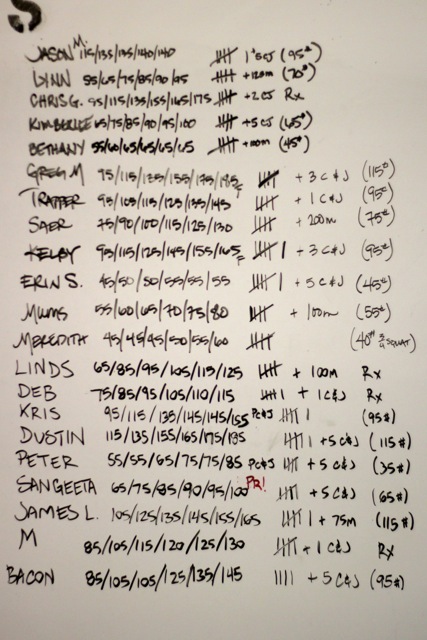 5
JASON M. 115/135/135/140/140 卌 1 CJ (95#)
LYNN 55/65/75/85/90/95 卌 +120m (70#)
CHRIS G. 95/115/135/155/165/175 卌 +2 CJ Rx
KIMBERLEE 65/75/85/90/95/100 卌 +5 CJ (65#)
BETHANY 55/60/65/65/65/65 卌 +100m (45#)
GREG M 95/115/135/155/175/185F 卌 + 3 C&J (115#)
TRAPPER 95/105/115/125/135/145 卌 + 1 C&J (95#)
SAER 75/90/100/115/125/130 卌 + 200m (75#)
KELBY 95/115/125/145/155/165F 卌 | + 3 C&J (95#)
ERIN S. 45/50/50/55/55/55 卌 | + 5 C&J (45#)
MUMS 55/60/65/70/75/80 卌 + 100m (55#)
MEREDITH 45/45/45/50/55/60 卌 (40# 3/4 SQUAT)
LINDS 65/85/95/105/115/125 卌 + 100M Rx
DEB 75/85/95/105/110/115 卌 | + 1 C&J Rx
KRIS 95/115/135/145/145/155 PC&J 卌 | (95#)
DUSTIN 115/135/155/165/175/185 卌 | +5 C&J (115#)
PETER 55/55/65/75/75/85 PC&J 卌 + 5 C&J (35#)
SANGEETA 65/75/85/90/95/100 PR! 卌 + 5 C&J (65#)
JAMES L. 105/125/135/145/155/165 卌 | + 75M (115#)
M 85/105/115/120/125/130 卌 + 1 C&J Rx
BACON 85/105/105/125/135/145 |||| + 5 C&J (95#)